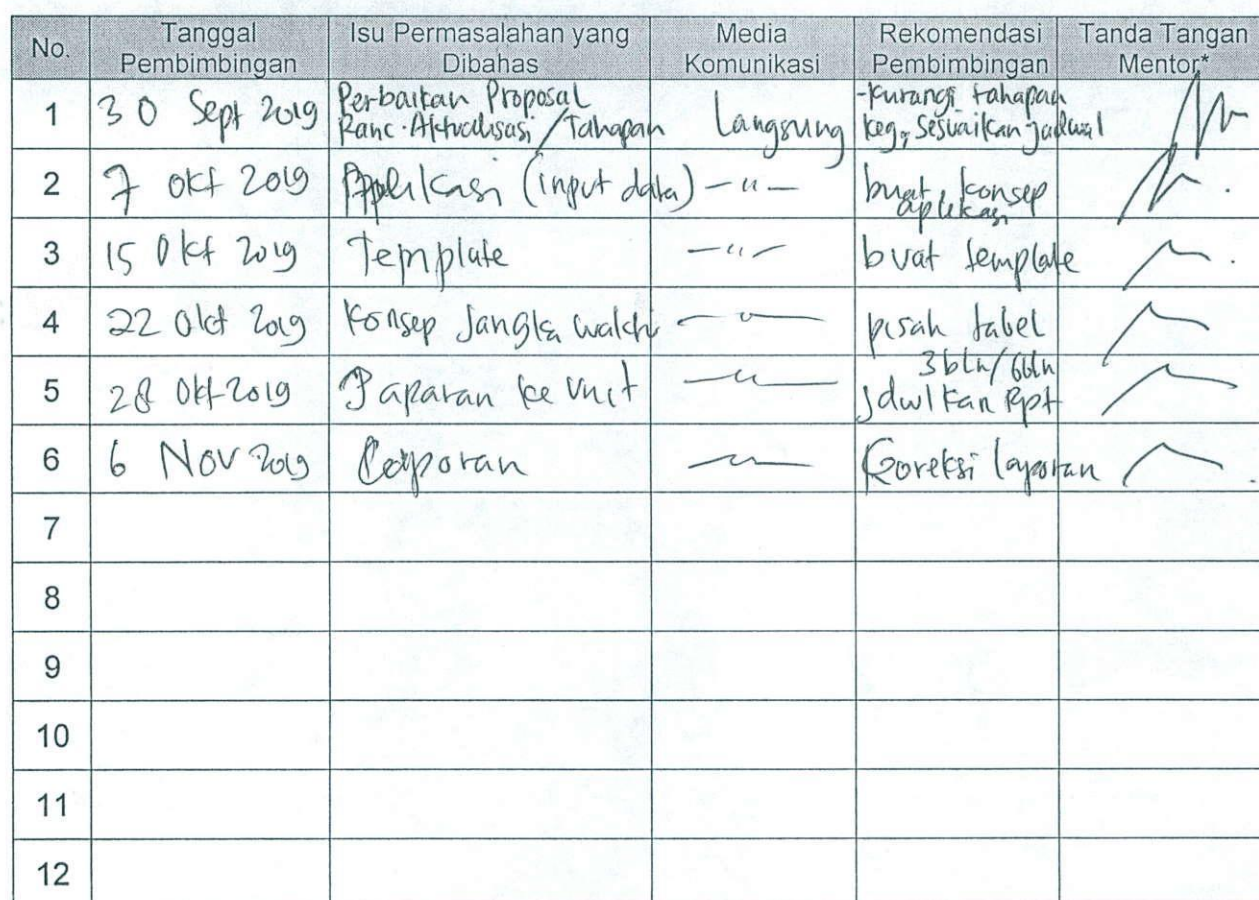 No. Tanggal Pembimbingan Isu Permasalahan yang Dibahas Media Komunikasi Rekomendasi Pembimbingan Tanda Tangan Mentor*
1 30 Sept 2019 Perbaikan Proposal Ranc. Aktualisasi / Tahapan Langsung -kurangi tahapan keg, sesuaikan jadwal
2 7 okt 2019 Applikasi (input data) -"- buat konsep aplikasi
3 15 Okt 2019 Template -"- buat template
4 22 Okt 2019 Konsep Jangka waktu -"- pisah tabel 3 bln/6bln
5 28 Okt 2019 Paparan ke Unit -"- Jdwlkan Rpt
6 6 Nov 2019 Laporan -"- Koreksi laporan
7
8
9
10
11
12